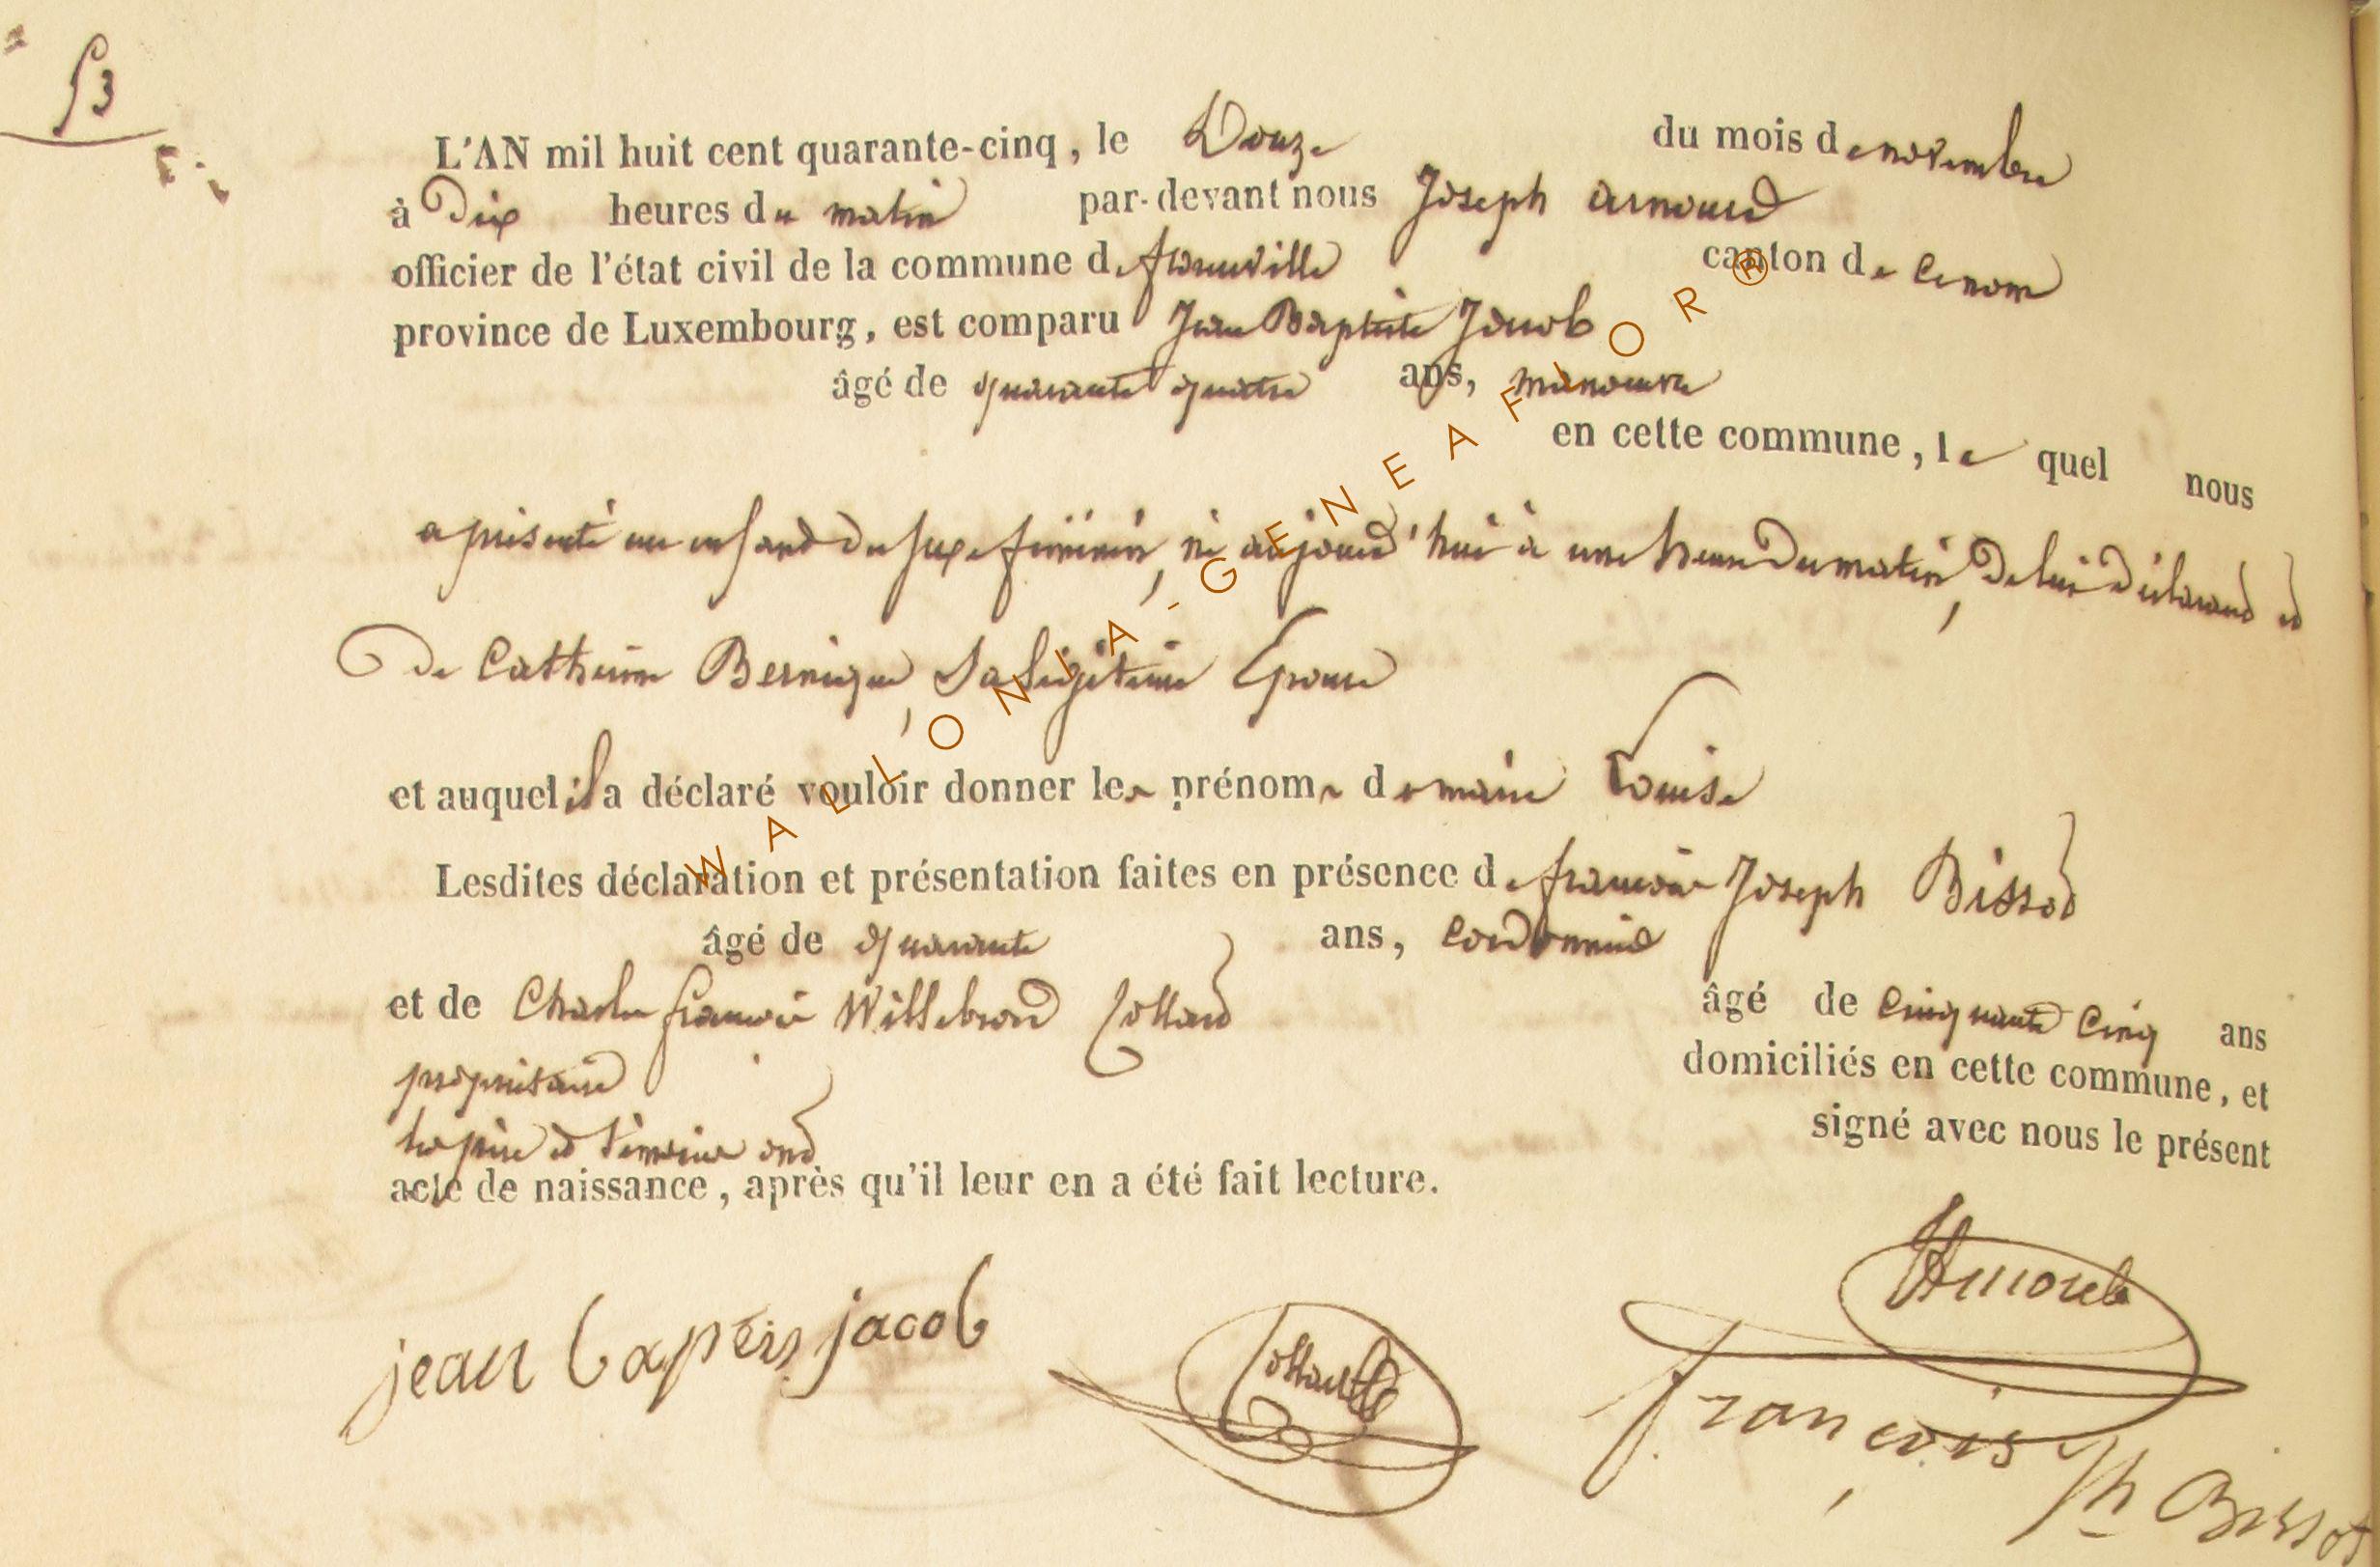 53
L'AN mil huit cent quarante-cinq, le Douze du mois de novembre
à Dix heures du matin par-devant nous Joseph arnould
officier de l'état civil de la commune de canton de
province de Luxembourg, est comparu Jean Baptiste Jacob
âgé de quarante quatre ans, manoeuvre
en cette commune, le quel nous
a présenté un enfand du sexe féminin, né aujourd'hui à une heure du matin, de lui déclarand et
De Catherine Bernique, Sa légitime Epouse
et auquel il a déclaré vouloir donner les prénoms de marie Louise
Lesdites déclaration et présentation faites en présence de francois Joseph Bissot
âgé de quarante ans, cordonnier
et de Charles francois Willebrord Collard âgé de cinquante cinq ans
propriétaire domiciliés en cette commune, et
les père et témoins ont signé avec nous le présent
acte de naissance, après qu'il leur en a été fait lecture.
jean bapeis jacob
Collard
françois Jh Bissot
WALLONIA-GENEAFLOR®